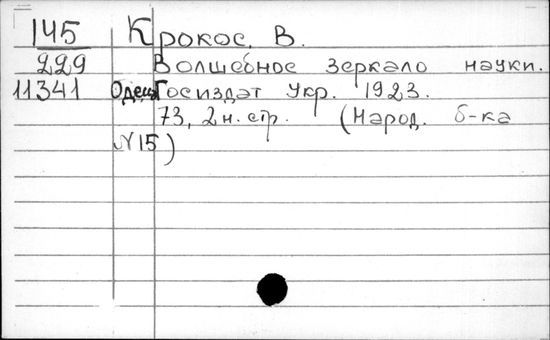 145 Крокос, В.
229 Волшебное зеркало науки.
11341 Одесса Госиздат Укр. 1923.
73, 2 н. стр. (Народ. б-ка
N 15)